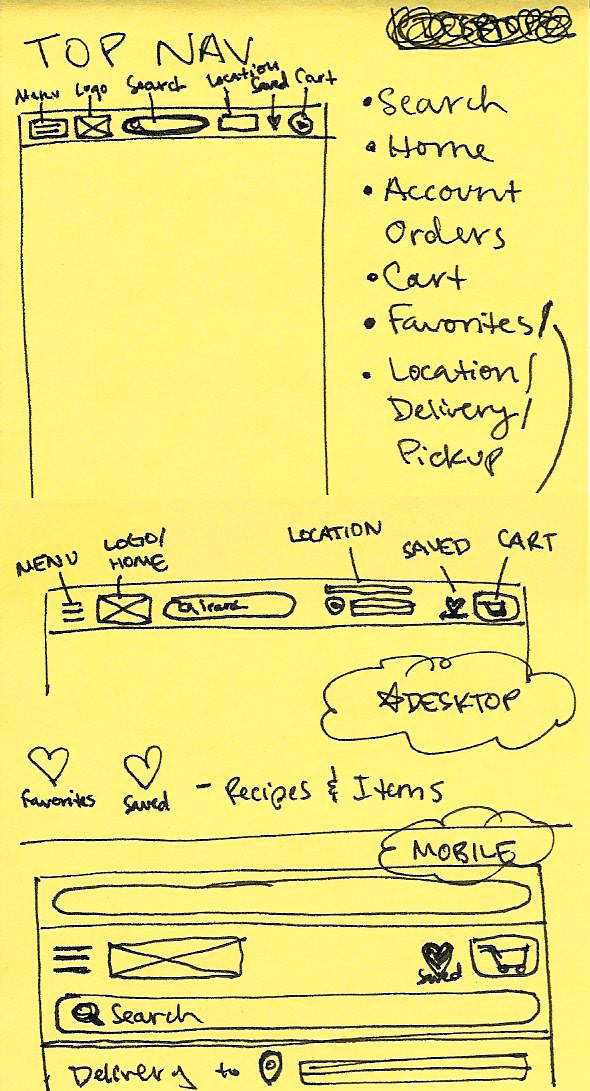 TOP NAV
Menu Logo Search Location Saved Cart
• Search
• Home
• Account
Orders
• Cart
• Favorites/
• Location/
Delivery/
Pickup
MENU LOGO/
HOME
LOCATION SAVED CART
Search
☆DESKTOP
Favorites Saved - Recipes & Items
MOBILE
Saved
Search
Delivery to